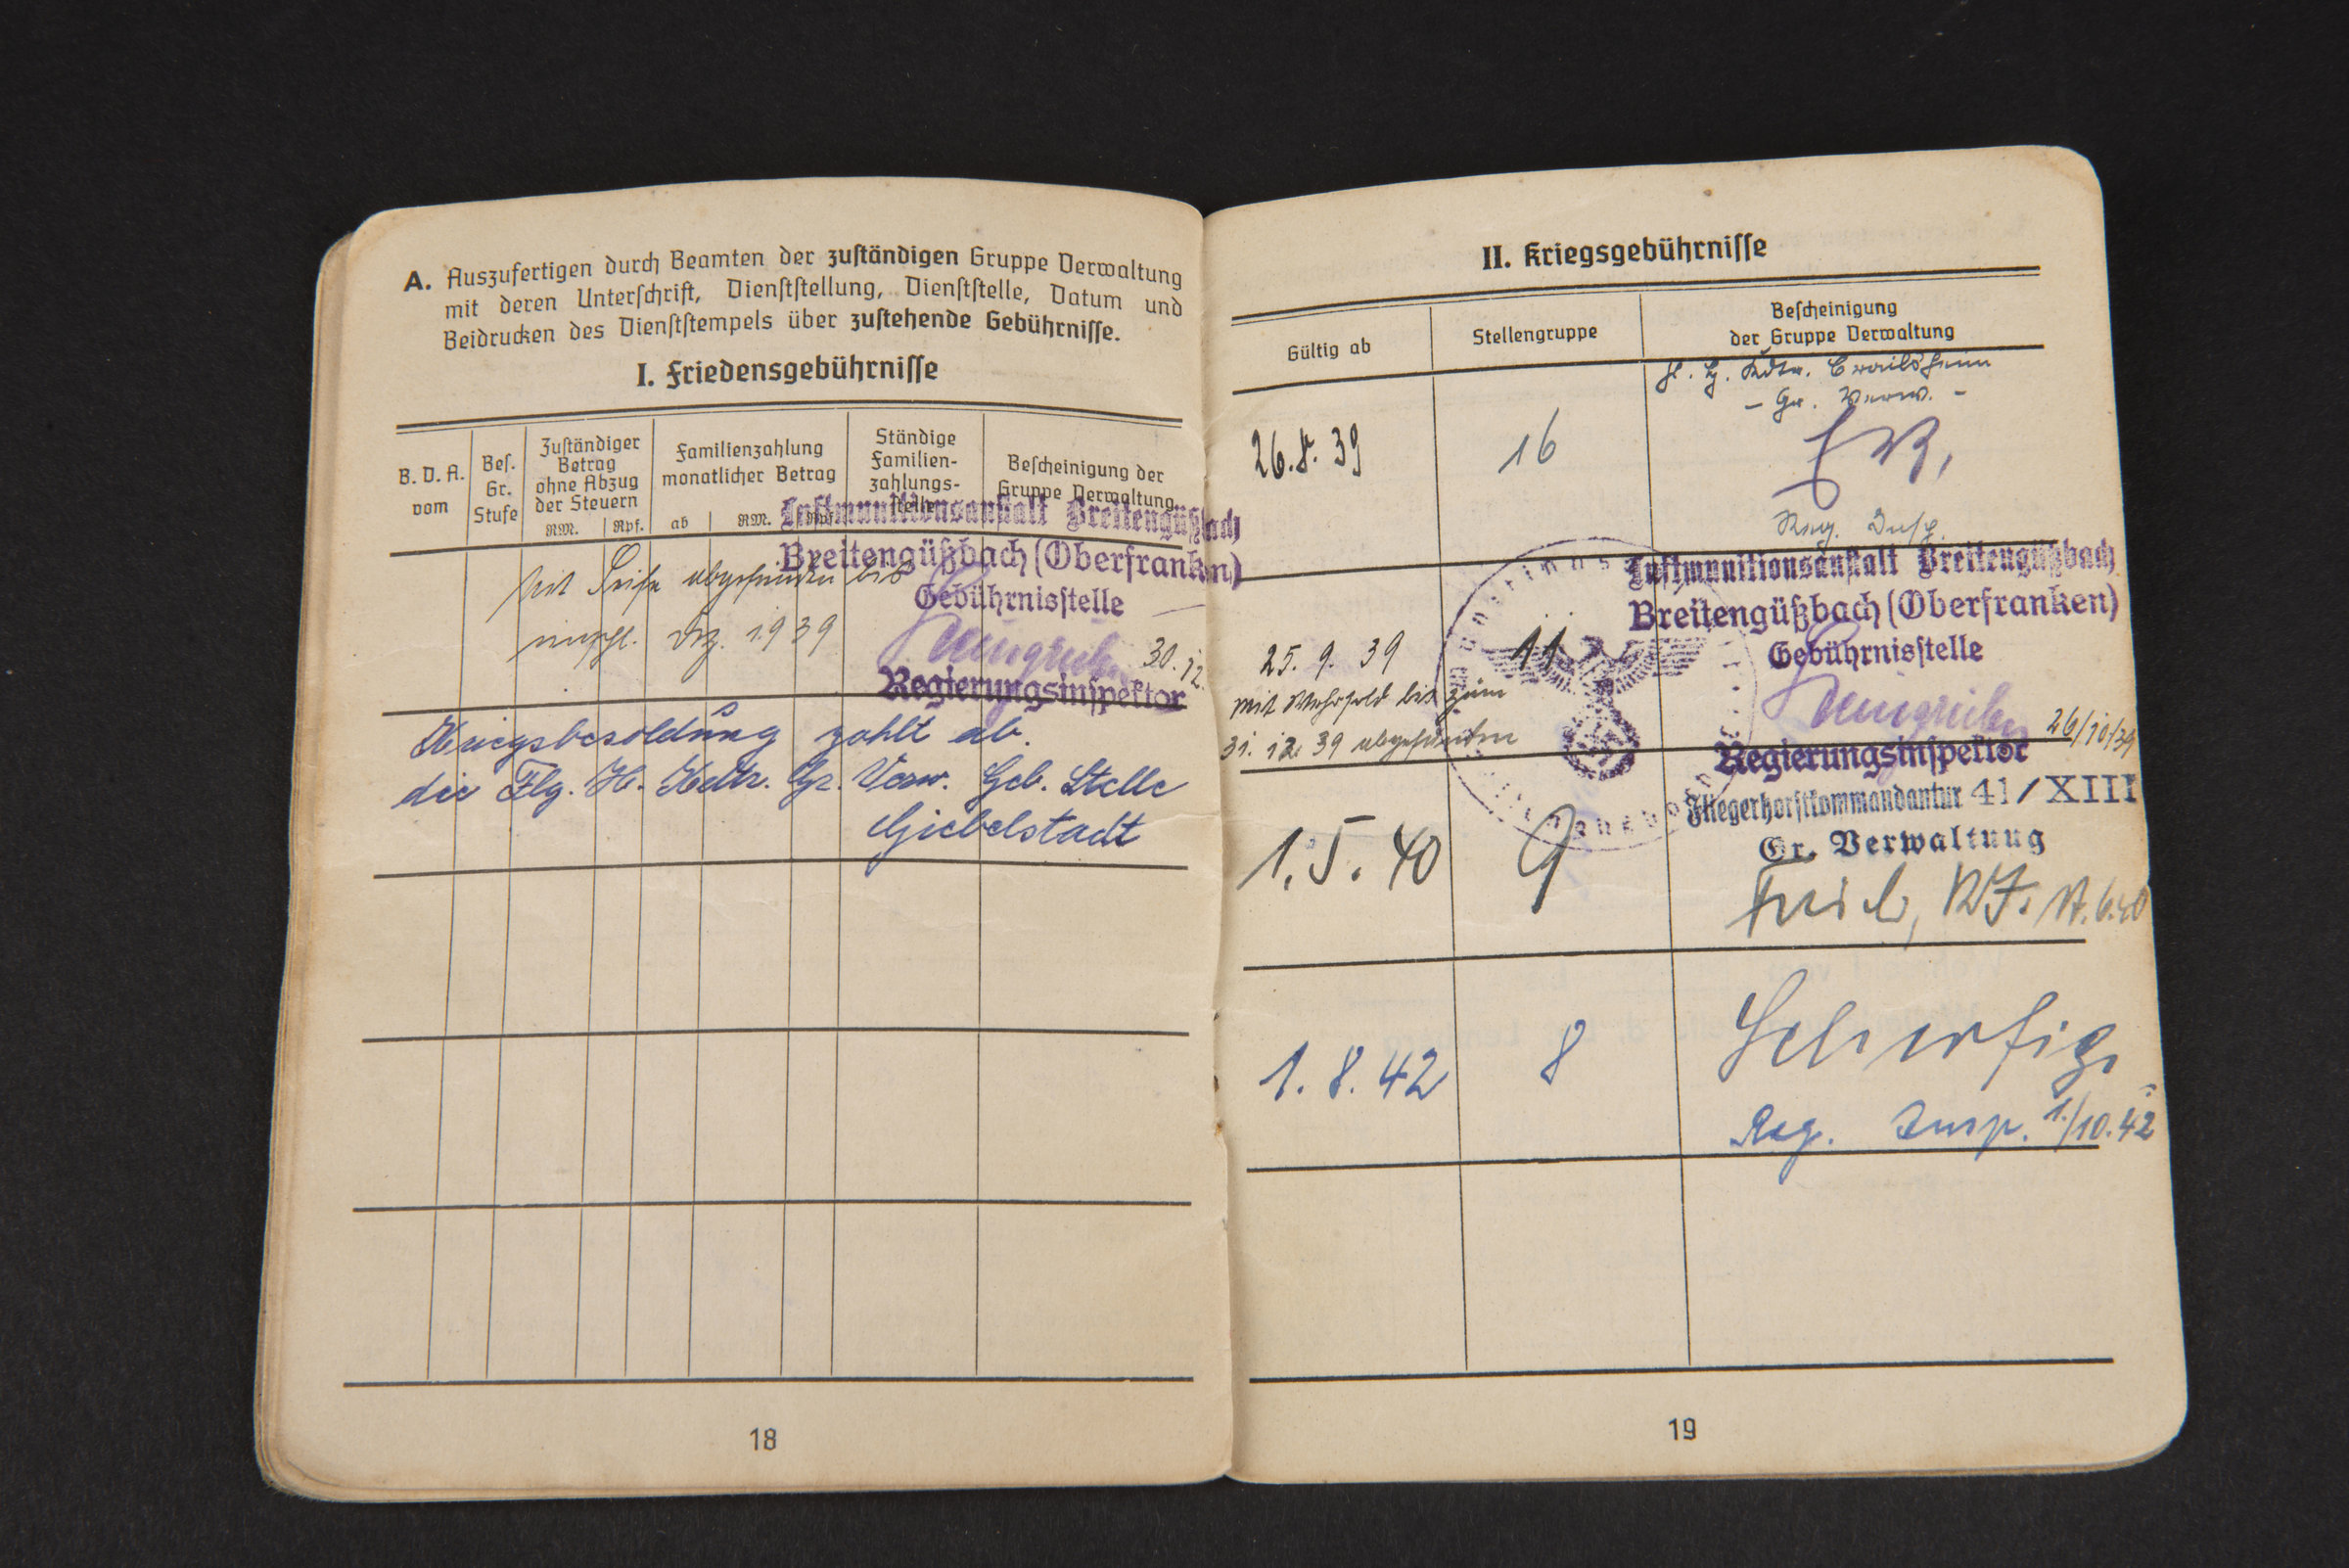 A. Auszufertigen durch Beamten der zuständigen Gruppe Verwaltung
mit deren Unterschrift, Dienststellung, Dienststelle, Datum und
Beidrucken des Dienststempels über zustehende Gebührnisse.
I. Friedensgebührnisse
B. D. A. vom
Bes. Gr. Stufe
Zuständiger Betrag ohne Abzug der Steuern
RM. Rpf.
Familienzahlung monatlicher Betrag
ab RM. Rpf.
Ständige Familien-zahlungs-stelle
Bescheinigung der Gruppe Verwaltung
Luftmunitionsanstalt Breitengüßbach
Breitengüßbach (Oberfranken)
Gebührnisstelle
Mit Seife abgefunden bis
einschl. Dez. 1939
30. 12.
Regierungsinspektor
Kriegsbesoldung zahlt ab.
die Flg. H. Kdtr. Gr. Verw. Geb. Stelle
Giebelstadt
18
II. Kriegsgebührnisse
Gültig ab
Stellengruppe
Bescheinigung
der Gruppe Verwaltung
Fl. H. Kdtr. Crailsheim
- Gr. Verw. -
26. 8. 39
16
Reg. Insp.
Luftmunitionsanstalt Breitengüßbach
Breitengüßbach (Oberfranken)
Gebührnisstelle
25. 9. 39
11
mit Wehrsold bis zum
31. 12. 39 abgefunden
26/10/39
Regierungsinspektor
Fliegerhorstkommandantur 41/XIII
Gr. Verwaltung
1. 5. 40
9
1. 8. 42
8
Reg. Insp. 1./10. 42
19